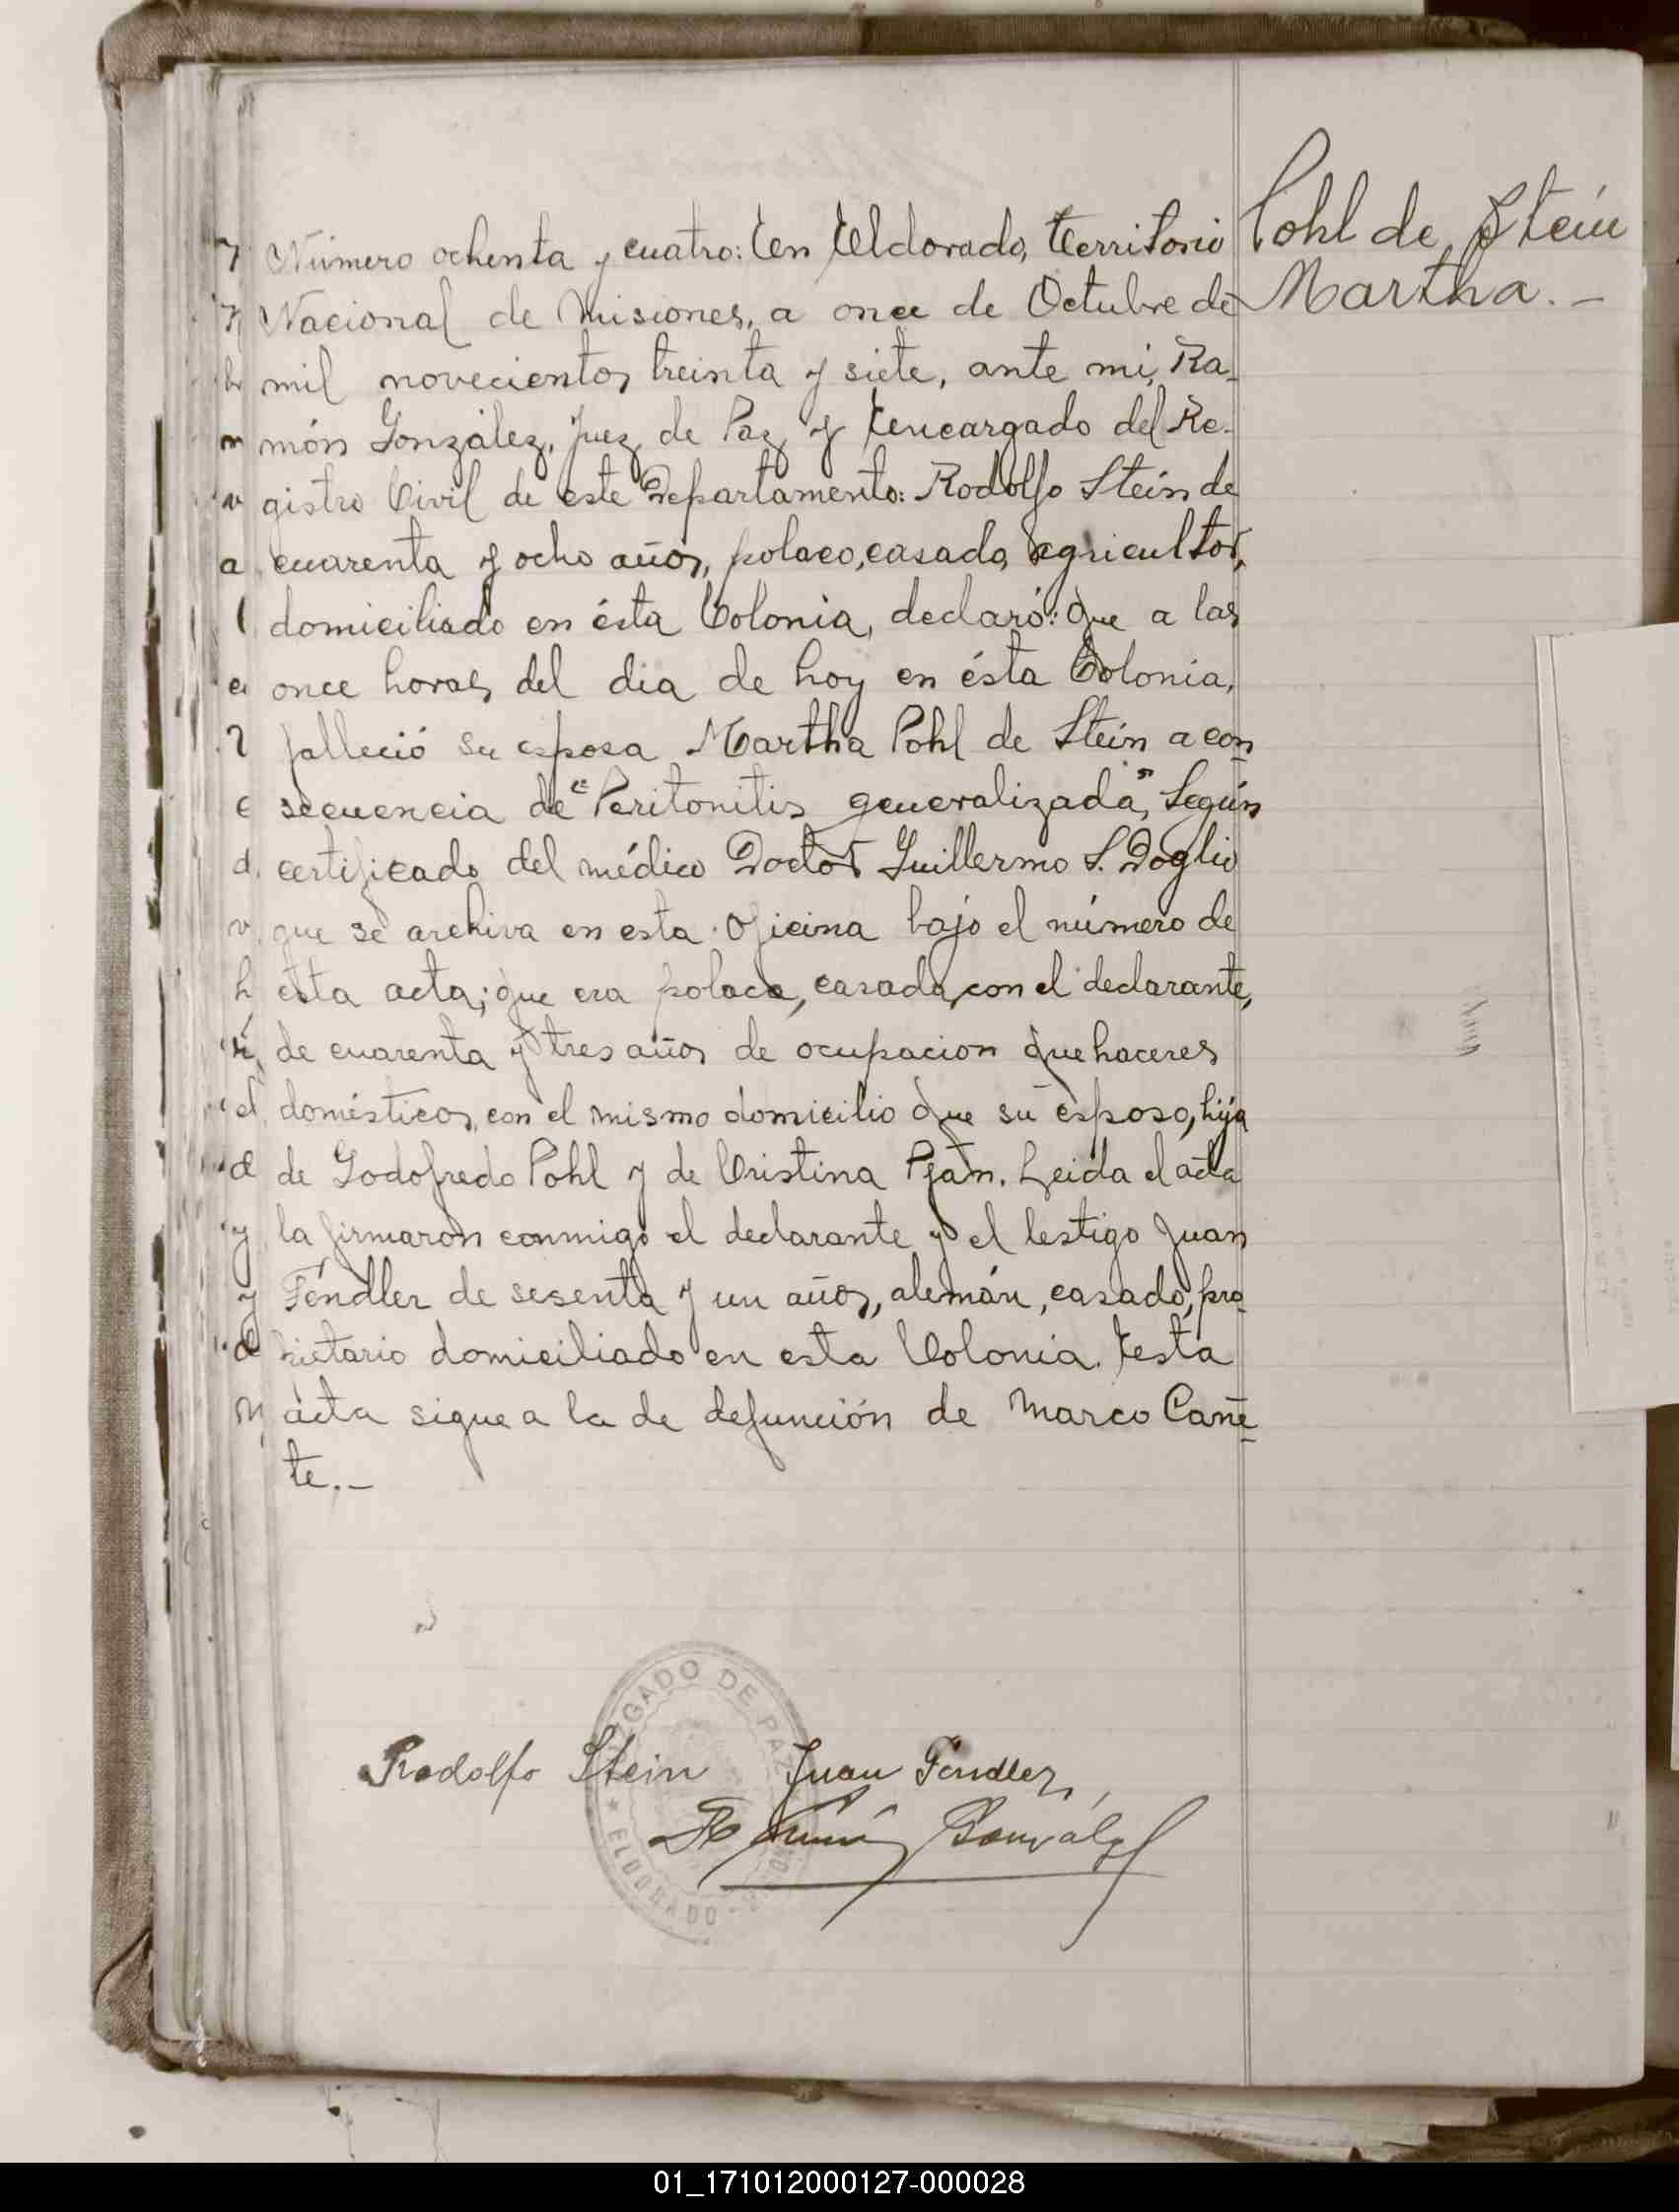 Número ochenta y cuatro: En Eldorado, Territorio
Nacional de Misiones, a once de Octubre de
mil novecientos treinta y siete, ante mi, Ra-
món González, Juez de Paz y Encargado del Re-
gistro Civil de este Departamento: Rodolfo Stein de
cuarenta y ocho años, polaco, casado, agricultor,
domiciliado en ésta Colonia, declaró: Que a las
once horas del dia de hoy en ésta Colonia,
falleció su esposa Martha Pohl de Stein a con
secuencia de "Peritonitis generalizada", Según
certificado del médico Doctor Guillermo S. Doglio
que se archiva en esta Oficina bajo el número de
esta acta; que era polaca, casada con el declarante,
de cuarenta y tres años de ocupacion quehaceres
domésticos, con el mismo domicilio que su esposo, hija
de Godofredo Pohl y de Cristina Pjan. Leida el acta
la firmaron conmigo el declarante y el testigo Juan
Féndler de sesenta y un años, alemán, casado, pro-
pietario domiciliado en esta Colonia. Esta
acta sigue a la de defunción de Marco Cañe-
te.-
Pohl de Stein
Martha.-
JUZGADO DE PAZ
ELDORADO
Rodolfo Stein
Juan Féndler
Ramón González
01_171012000127-000028